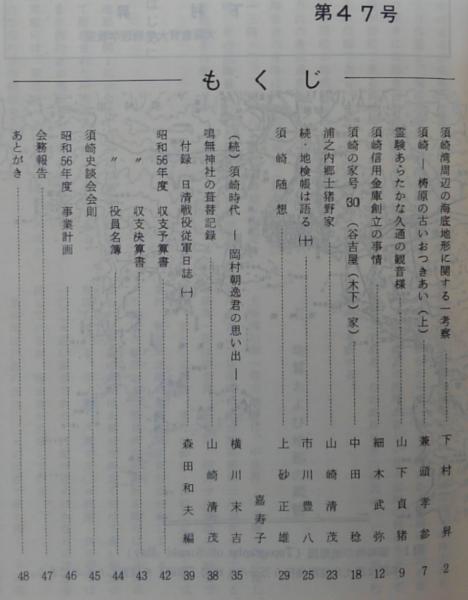 第47号
もくじ
須崎湾周辺の海底地形に関する一考察 下村 昇 2
須崎―梼原の古いおつきあい(上) 兼頭孝参 7
霊験あらたかな久通の観音様 山下貞猪 9
須崎信用金庫創立の事情 細木武弥 12
須崎の家号 30 (谷吉屋(木下)家) 中田 稔 18
浦之内郷士猪野家 山崎清茂 23
続・地検帳は語る(十) 市川豊八 25
須崎随想 上砂正雄 29
嘉寿子
(続)須崎時代 ―岡村朝逸君の思い出― 横川末吉 35
鳴無神社の葺替記録 山崎清茂 38
付録 日清戦役従軍日誌(一) 森田和夫編 39
昭和56年度 収支予算書 42
〃 収支決算書 43
〃 役員名簿 44
須崎史談会会則 45
昭和56年度 事業計画 46
会務報告 47
あとがき 48